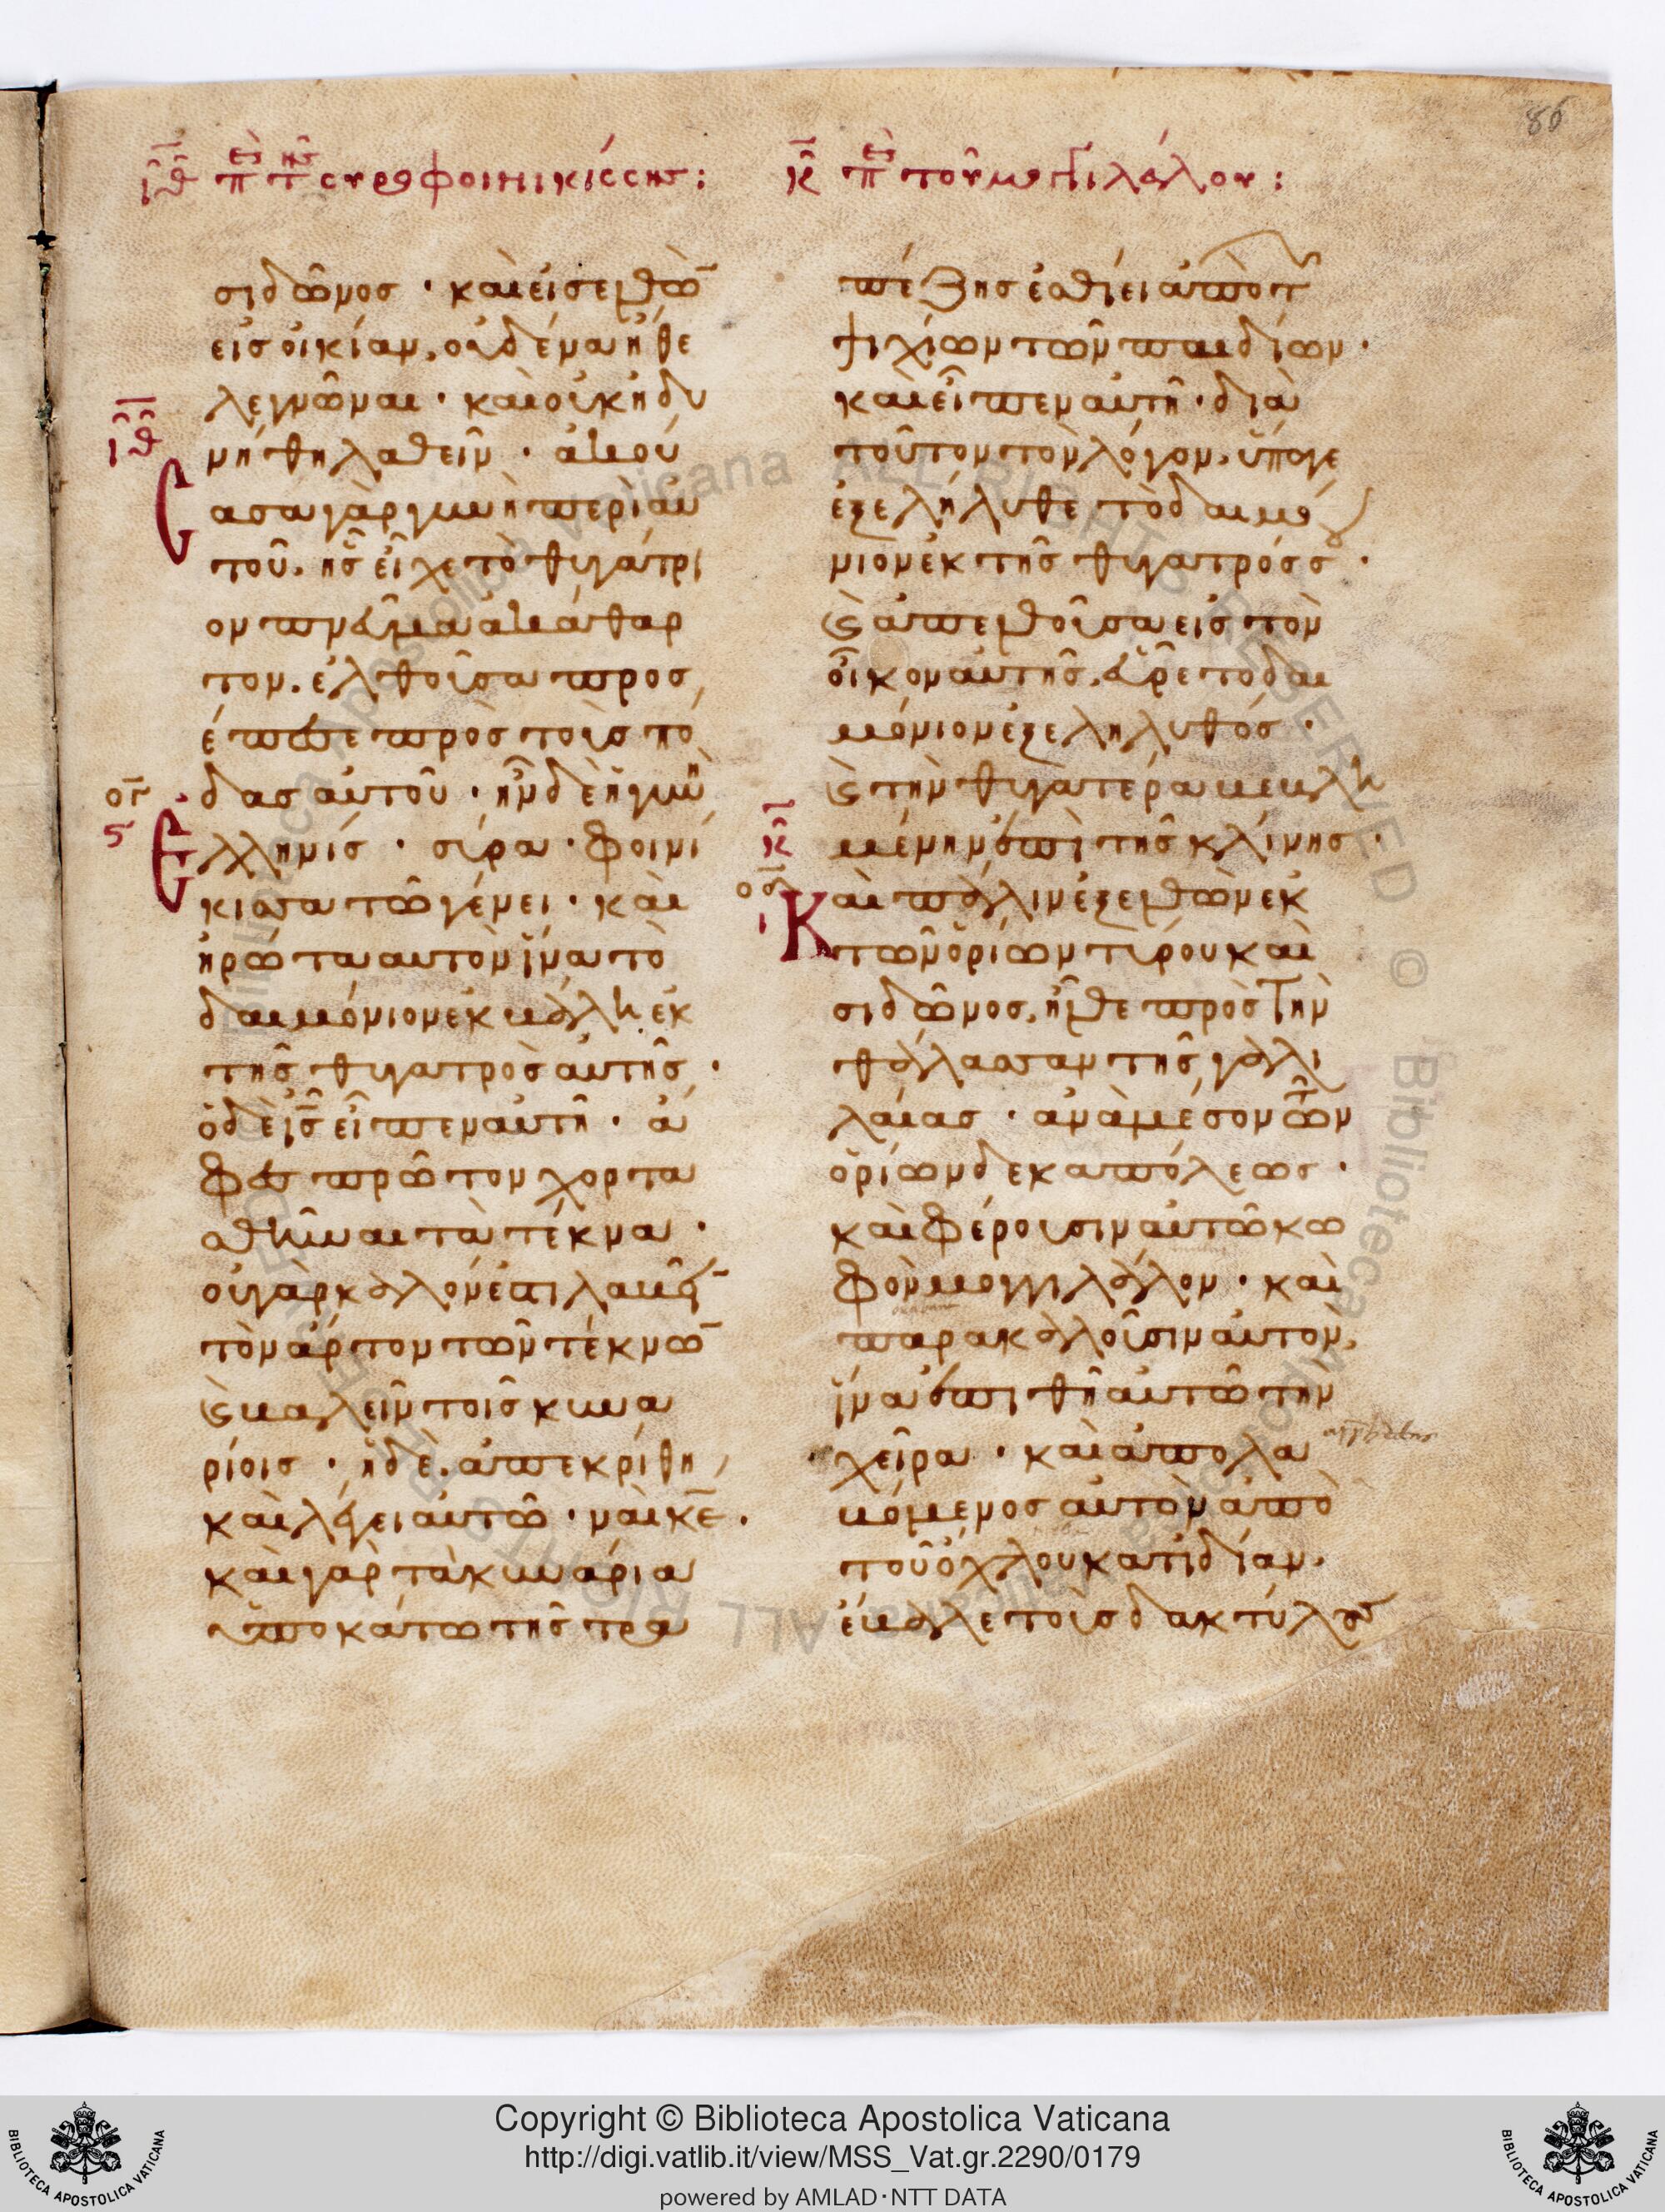 86
ιθ περὶ τῆς συροφοινικίσσης:
κ περὶ τοῦ μογγιλάλου:
σιδῶνος · καὶ εἰσελθὼ̅
εἰς οἰκίαν, οὐδένα ἤθε
λε γνῶναι · καὶ οὐκ ἠδυ
ιθ
νήθη λαθεῖν · ἀκού
σασα γὰρ γυνὴ περὶ αὐ
τοῦ, ἧς εἶχε τὸ θυγάτρι
ον πνεῦμα ἀκάθαρ
τον, ἐλθοῦσα προσ
έπεσε πρὸς τοὺς πό
ογ
δας αὐτοῦ · ἦν δὲ ἡ γυνὴ
ϛ
Ἑλληνίς · σύρα · φοινί
κισσα τῶ γένει · καὶ
ἠρώτα αὐτὸν ἵνα τὸ
δαιμόνιον ἐκβάλη ἐκ
τῆς θυγατρὸς αὐτῆς ·
ὁ δὲ ις̅ εἶπεν αὐτῆ · ἄ
φες πρῶτον χορτα
σθῆναι τὰ τέκνα ·
οὐ γὰρ καλόν ἐστι λαβεῖ̅
τὸν ἄρτον τῶν τέκνω̅
ϗ βαλεῖν τοῖς κυνα
ρίοις · ἡ δὲ ἀπεκρίθη
καὶ λέγει αὐτῶ · ναὶ κε̅ ·
καὶ γὰρ τὰ κυνάρια
ὑποκάτω τῆς τρα
πέζης ἐσθίει ἀπὸ τῶν
ψιχίων τῶν παιδίων ·
καὶ εἶπεν αὐτῆ · διὰ
τοῦτον τὸν λόγον, ὕπαγε
ἐξελήλυθε τὸ δαιμό
νιον ἐκ τῆς θυγατρός σου ·
ϗ ἀπελθοῦσα εἰς τὸν
οἶκον αὐτῆς, εὗρε τὸ δαι
μόνιον ἐξεληλυθός ·
ϗ τὴν θυγατέρα βεβλη
κ
μένην ἐπὶ τῆς κλίνης ·
οδ
ι
Καὶ πάλιν ἐξελθὼν ἐκ
τῶν ὁρίων τύρου καὶ
σιδῶνος, ἦλθε πρὸς τὴν
θάλασσαν τῆς γαλι
λαίας · ἀνὰ μέσον τῶν
ὁρίων δεκαπόλεως ·
καὶ φέρουσιν αὐτῶ κω
φὸν μογγιλάλον · καὶ
παρακαλοῦσιν αὐτὸν,
ἵνα ἐπιθῆ αὐτῶ τὴν
χεῖρα · καὶ ἀπολα
βόμενος αὐτὸν ἀπὸ
τοῦ ὄχλου κατιδίαν,
ἔβαλε τοὺς δακτύλους
Copyright © Biblioteca Apostolica Vaticana
http://digi.vatlib.it/view/MSS_Vat.gr.2290/0179
powered by AMLAD·NTT DATA
BIBLIOTECA APOSTOLICA VATICANA
BIBLIOTECA APOSTOLICA VATICANA